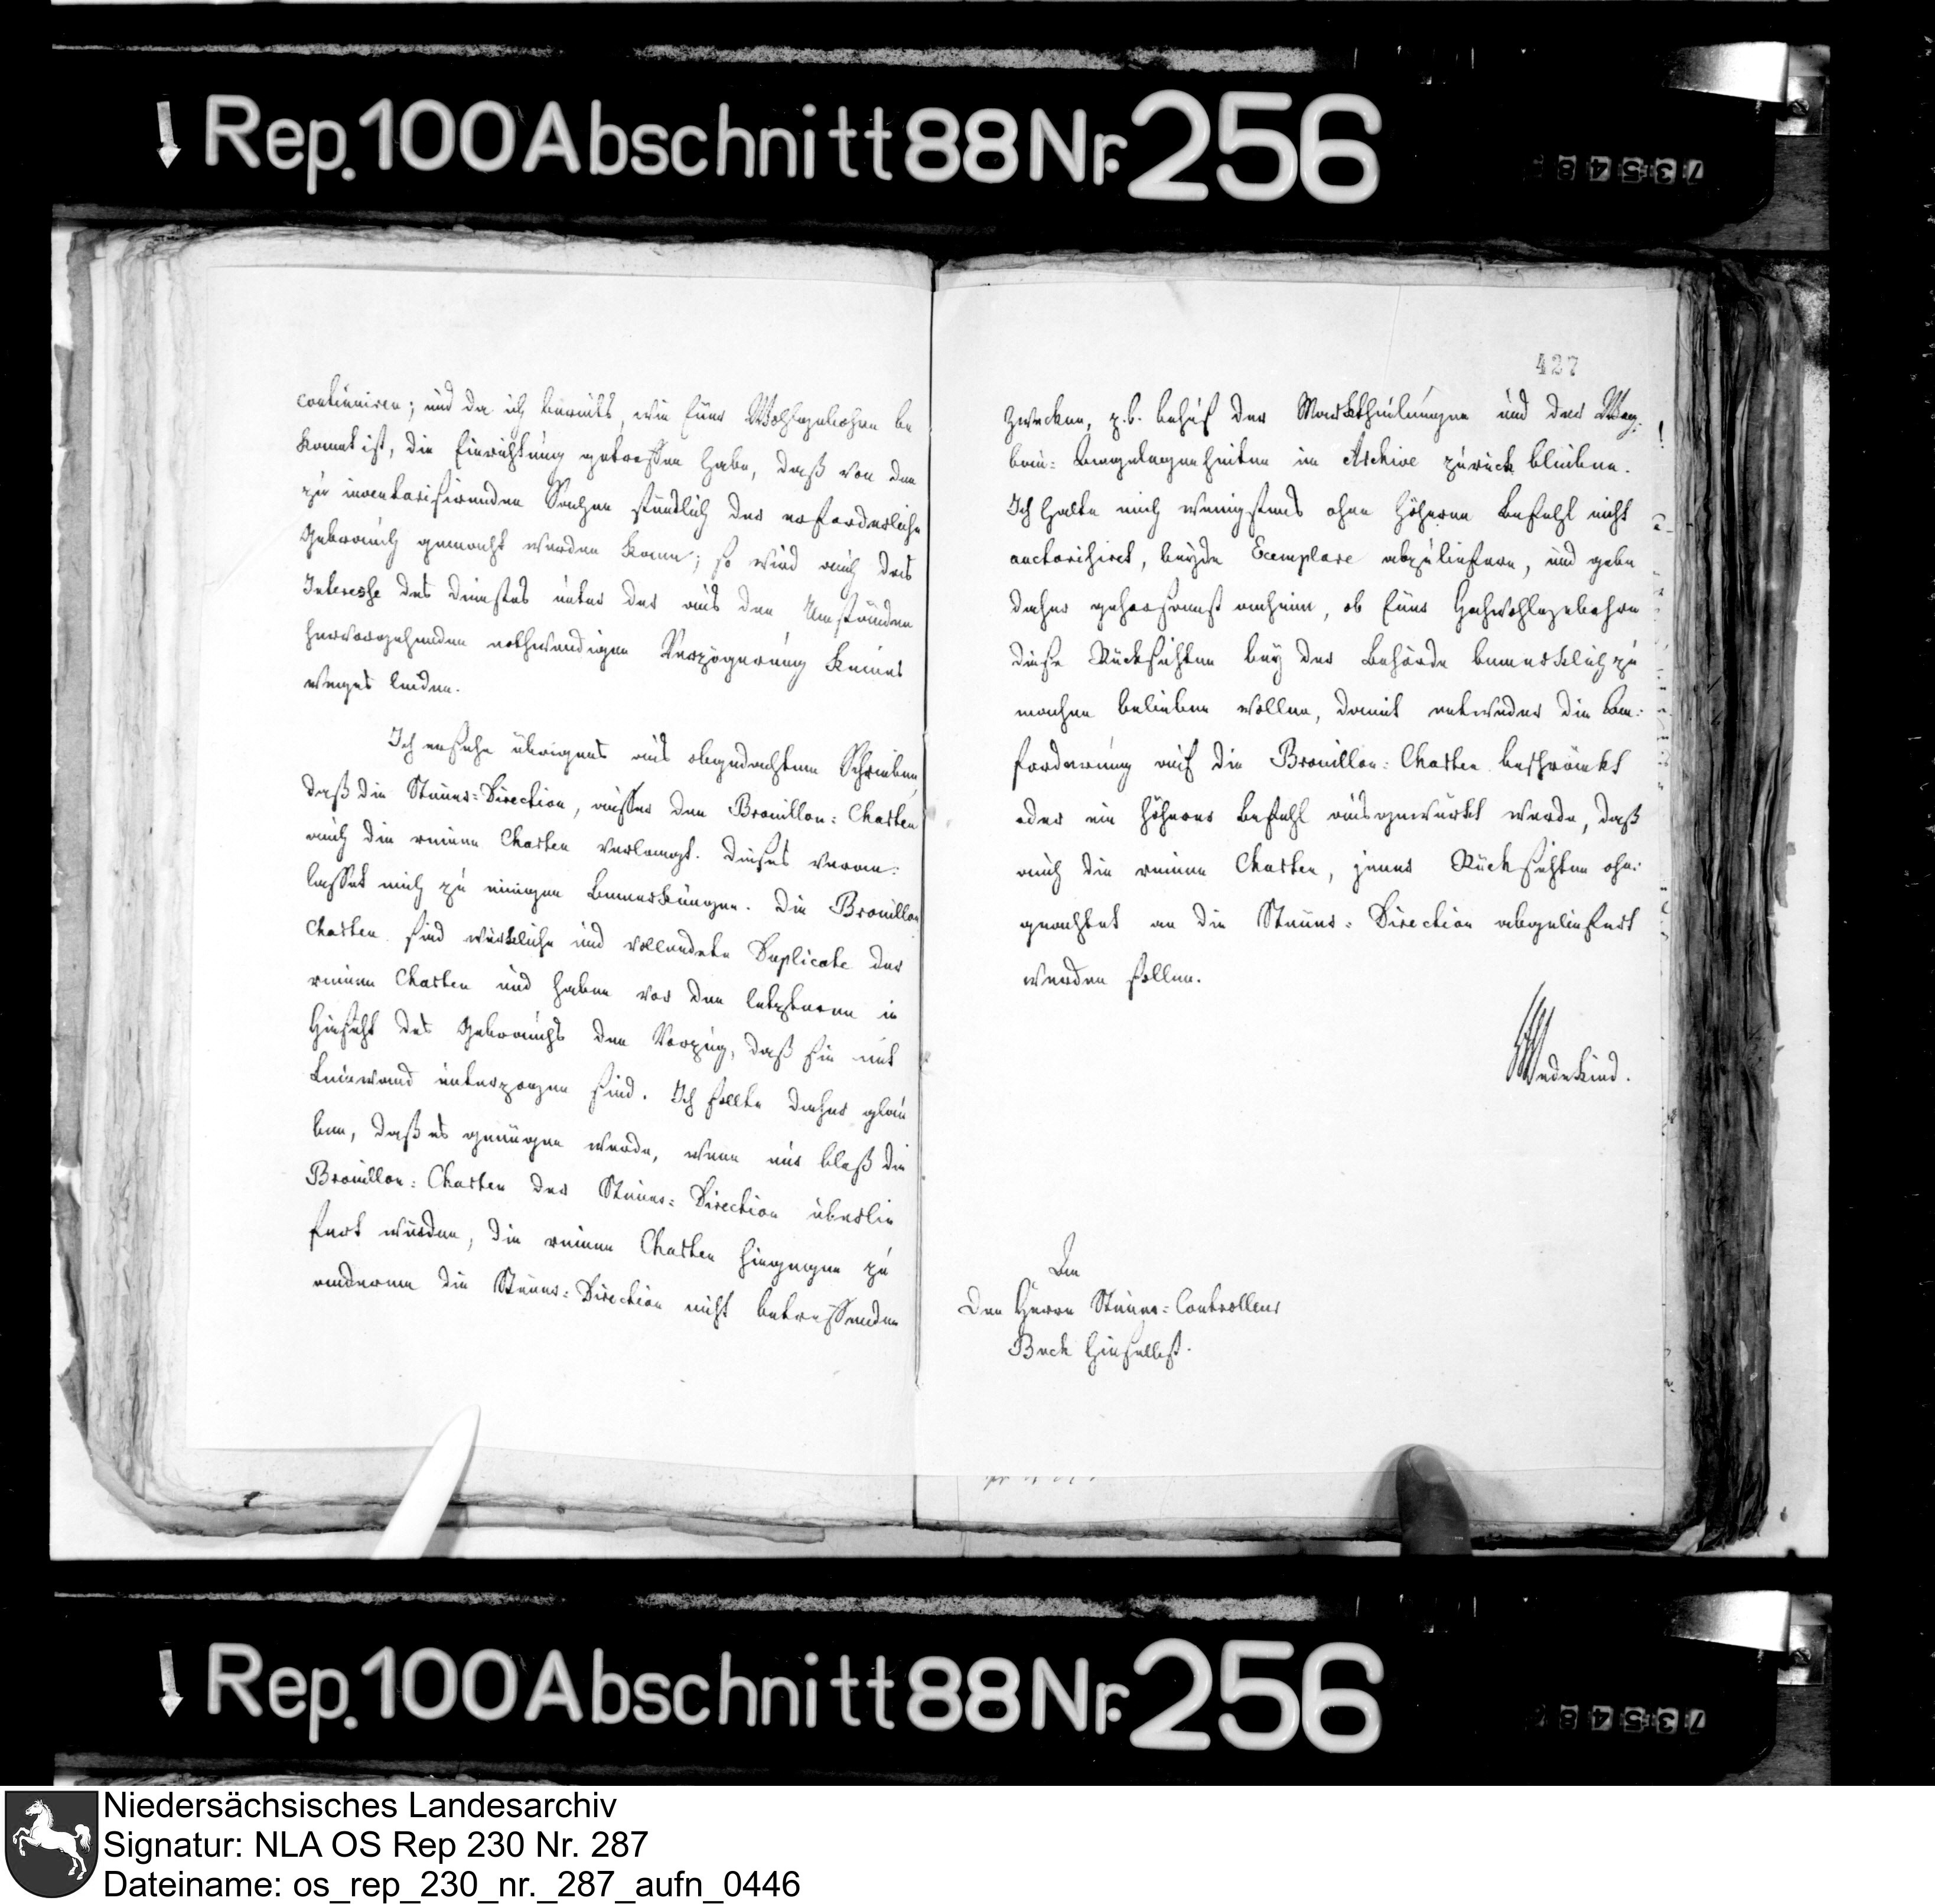 Rep. 100 Abschnitt 88 Nr. 256
73548
427
continuiren; und da ich bereits, wie Euer Wohlgebohren be
kannt ist, die Einrichtung getroffen habe, daß von den
zu inventarisirenden Sachen stündlich der erforderliche
Gebrauch gemacht werden kann; so wird auch das
Interesse des Dienstes unter der aus den Umständen
hervorgehenden nothwendigen Verzögerung keines
weges leiden.
Ich ersehe übrigens aus obgedachtem Schreiben,
daß die Steuer-Direction, ausser den Brouillon-Charten
auch die reinen Charten verlangt. Dieses veran-
lasset mich zu einigen Bemerkungen. Die Brouillon
Charten sind würkliche und vollendete Duplicate der
reinen Charten und haben vor den letzteren in
Hinsicht des Gebrauchs den Vorzug, daß sie mit
Leinwand unterzogen sind. Ich sollte daher glau
ben, daß es genügen werde, wenn nur bloß die
Brouillon-Charten der Steuer-Direction überlie
fert würden, die reinen Charten hingegen zu
anderen die Steuer-Direction nicht betreffenden
Zwecken, z.b. behuf der Marktheilungen und der Weg-
bau- Angelegenheiten im Archive zurück blieben.
Ich halte mich wenigstens ohne höhern Befehl nicht
auctorisirt, beyde Exemplare abzuliefern, und gebe
daher gehorsamst anheim, ob Euer Hochwohlgebohren
diese Rücksichten bey der Behörde bemerklich zu
machen belieben wollen, damit entweder die An-
forderung auf die Brouillon-Charten beschränkt
oder ein höherer Befehl ausgewürkt werde, daß
auch die reinen Charten, jener Rücksichten ohn-
geachtet an die Steuer-Direction abgeliefert
werden sollen.
Wedekind.
An
den Herrn Steuer-Controlleur
Beck hieselbst.
Rep. 100 Abschnitt 88 Nr. 256
73548
Niedersächsisches Landesarchiv
Signatur: NLA OS Rep 230 Nr. 287
Dateiname: os_rep_230_nr._287_aufn_0446